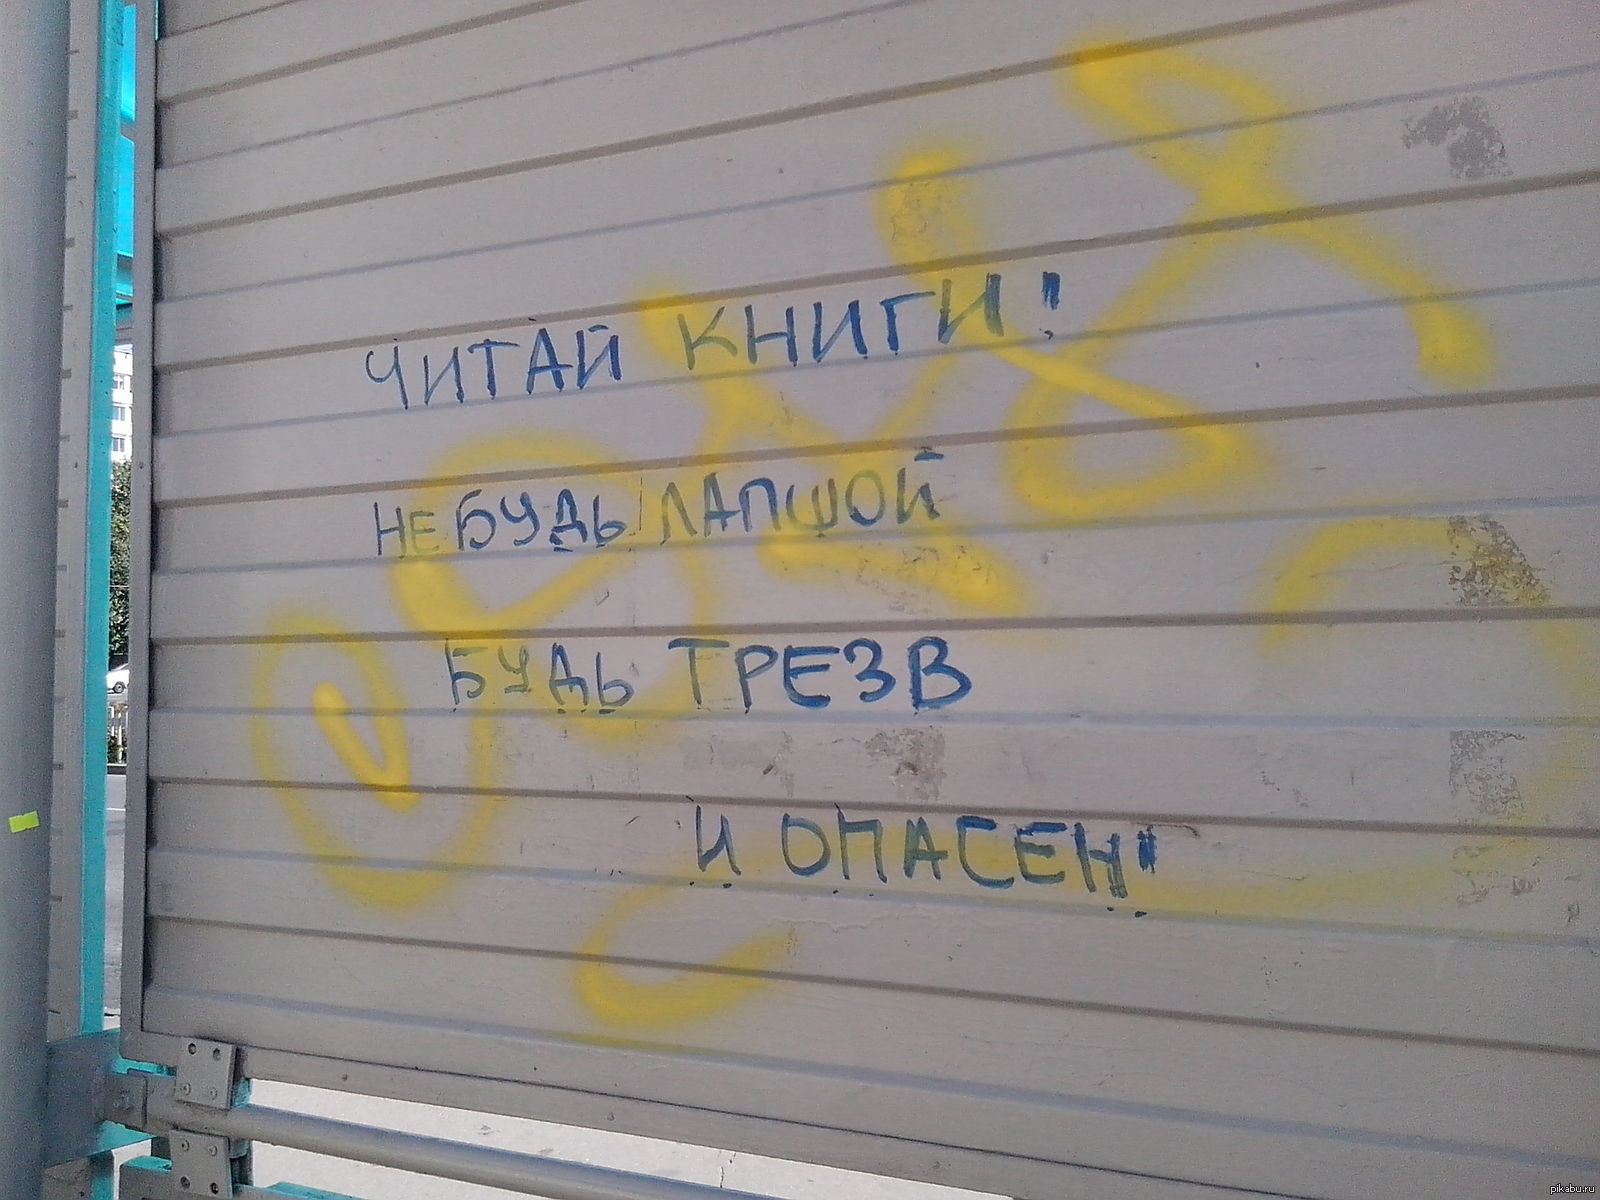 ЧИТАЙ КНИГИ!
НЕ БУДЬ ЛАПШОЙ
БУДЬ ТРЕЗВ
И ОПАСЕН!
pikabu.ru